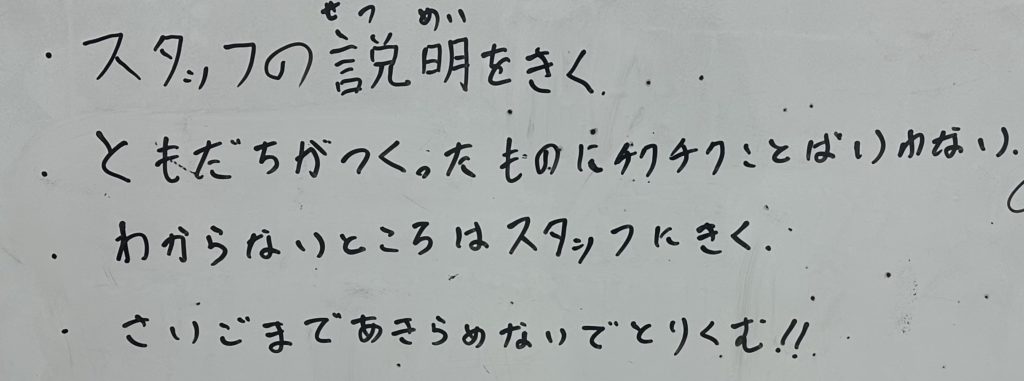 せつ めい
・スタッフの説明をきく.
・ともだちがつくったものにチクチクことばいわない.
・わからないところはスタッフにきく.
・さいごまであきらめないでとりくむ!!